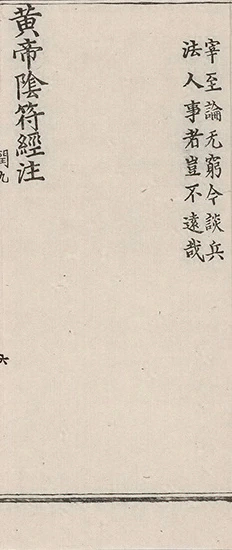 宰至論无窮今談兵
法人事者豈不遠哉
黄帝陰符經注
閏九
六